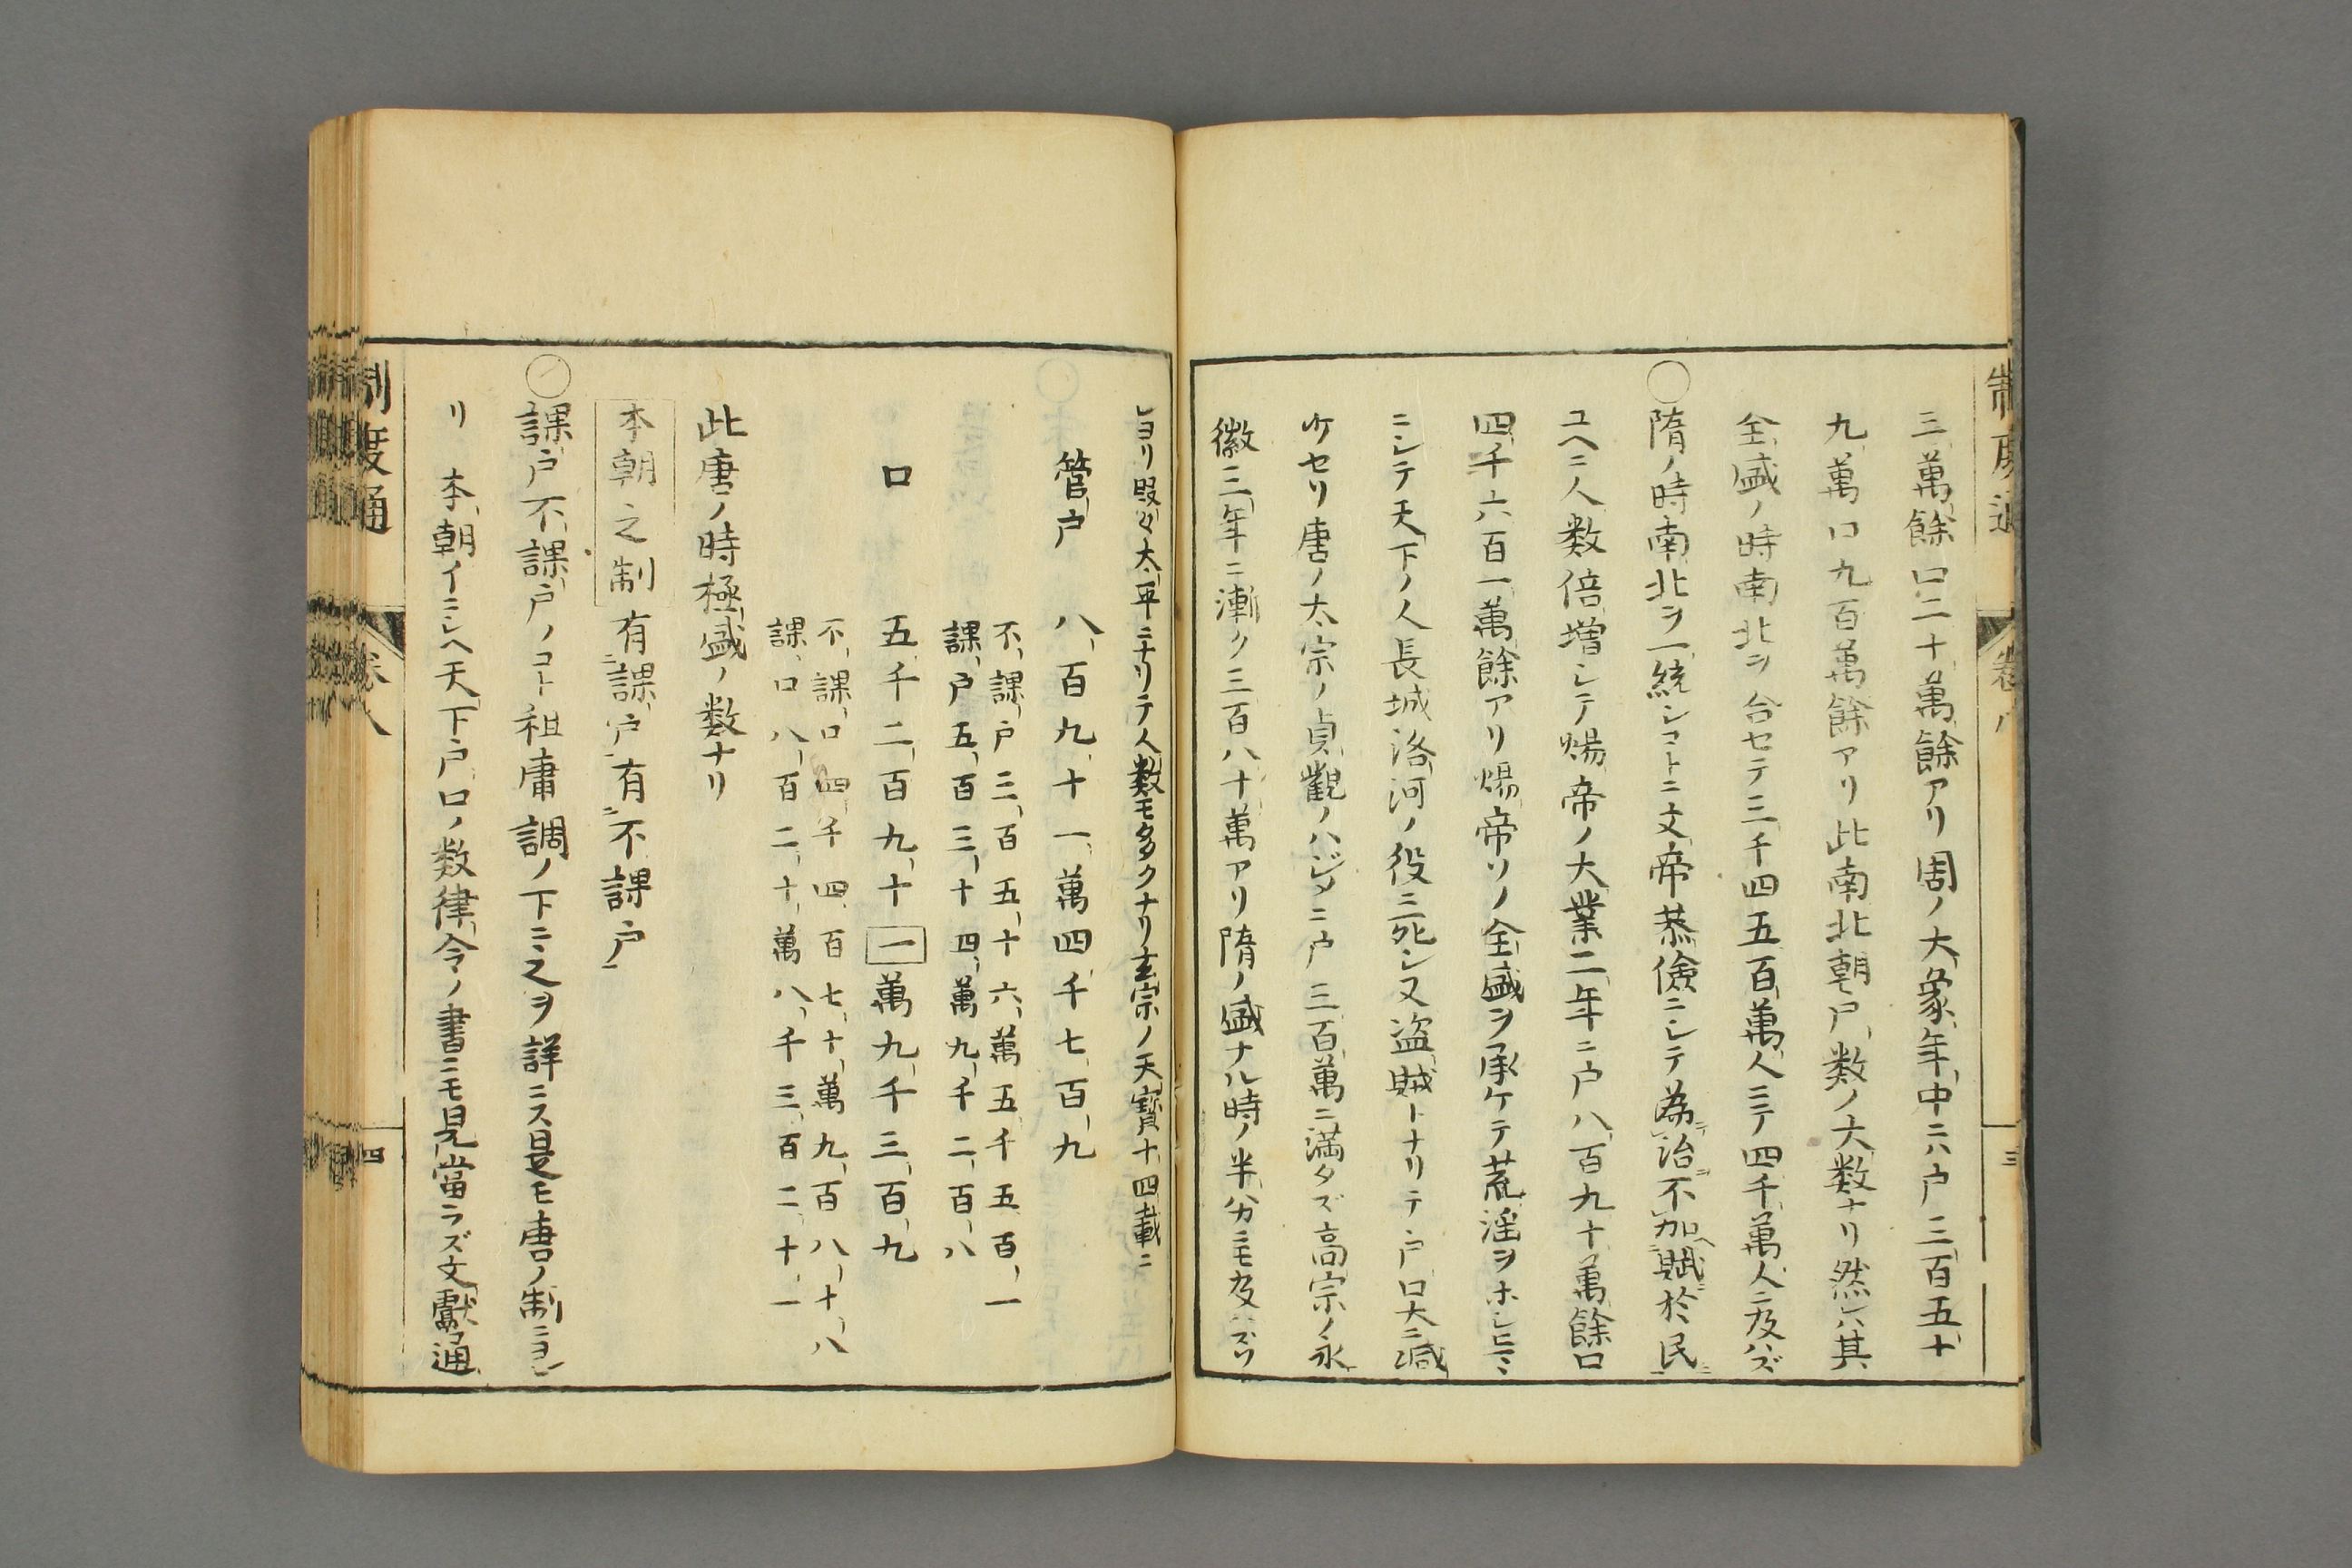 三萬餘口二十萬餘アリ周ノ大象年中ニハ戸三百五十
九萬口九百萬餘アリ此南北朝戸数ノ大数ナリ然レハ其
全盛ノ時南北ヲ合セテ三千四五百萬人ニテ四千萬人ニ及ハズ
◯隋ノ時南北ヲ一統シコトニ文帝恭儉ニシテ為治不加賦於民
ユヘニ人数倍増シテ煬帝ノ大業二年ニ戸八百九十萬餘口
四千六百一萬餘アリ煬帝ソノ全盛ヲ承ケテ荒淫ヲホシヒマヽ
ニシテ天下ノ人長城洛河ノ役ニ死シ又盗賊トナリテ戸口大ニ減
ケセリ唐ノ太宗ノ貞觀ノハジメニ戸三百萬ニ満タズ高宗ノ永
徽三年ニ漸ク三百八十萬アリ隋ノ盛ナル時ノ半分ニモ及ハズソ
レヨリ段々太平ニナリテ人数モタクナリ玄宗ノ天寳十四載ニ
管戸 八百九十一萬四千七百九
不課戸三百五十六萬五千五百一
課戸五百三十四萬九千二百八
口 五千二百九十一萬九千三百九
不課口四千四百七十萬九百八十八
課口八百二十萬八千三百二十一
此唐ノ時極盛ノ数ナリ
本朝之制 有課戸有不課戸
◯課戸不課戸ノコト租庸調ノ下ニ之ヲ詳ニス是モ唐ノ制ニヨレ
リ 本朝イニシヘ天下戸口ノ数律令ノ書ニモ見當ラズ文獻通
制度通 卷八 三
制度通 卷八 四